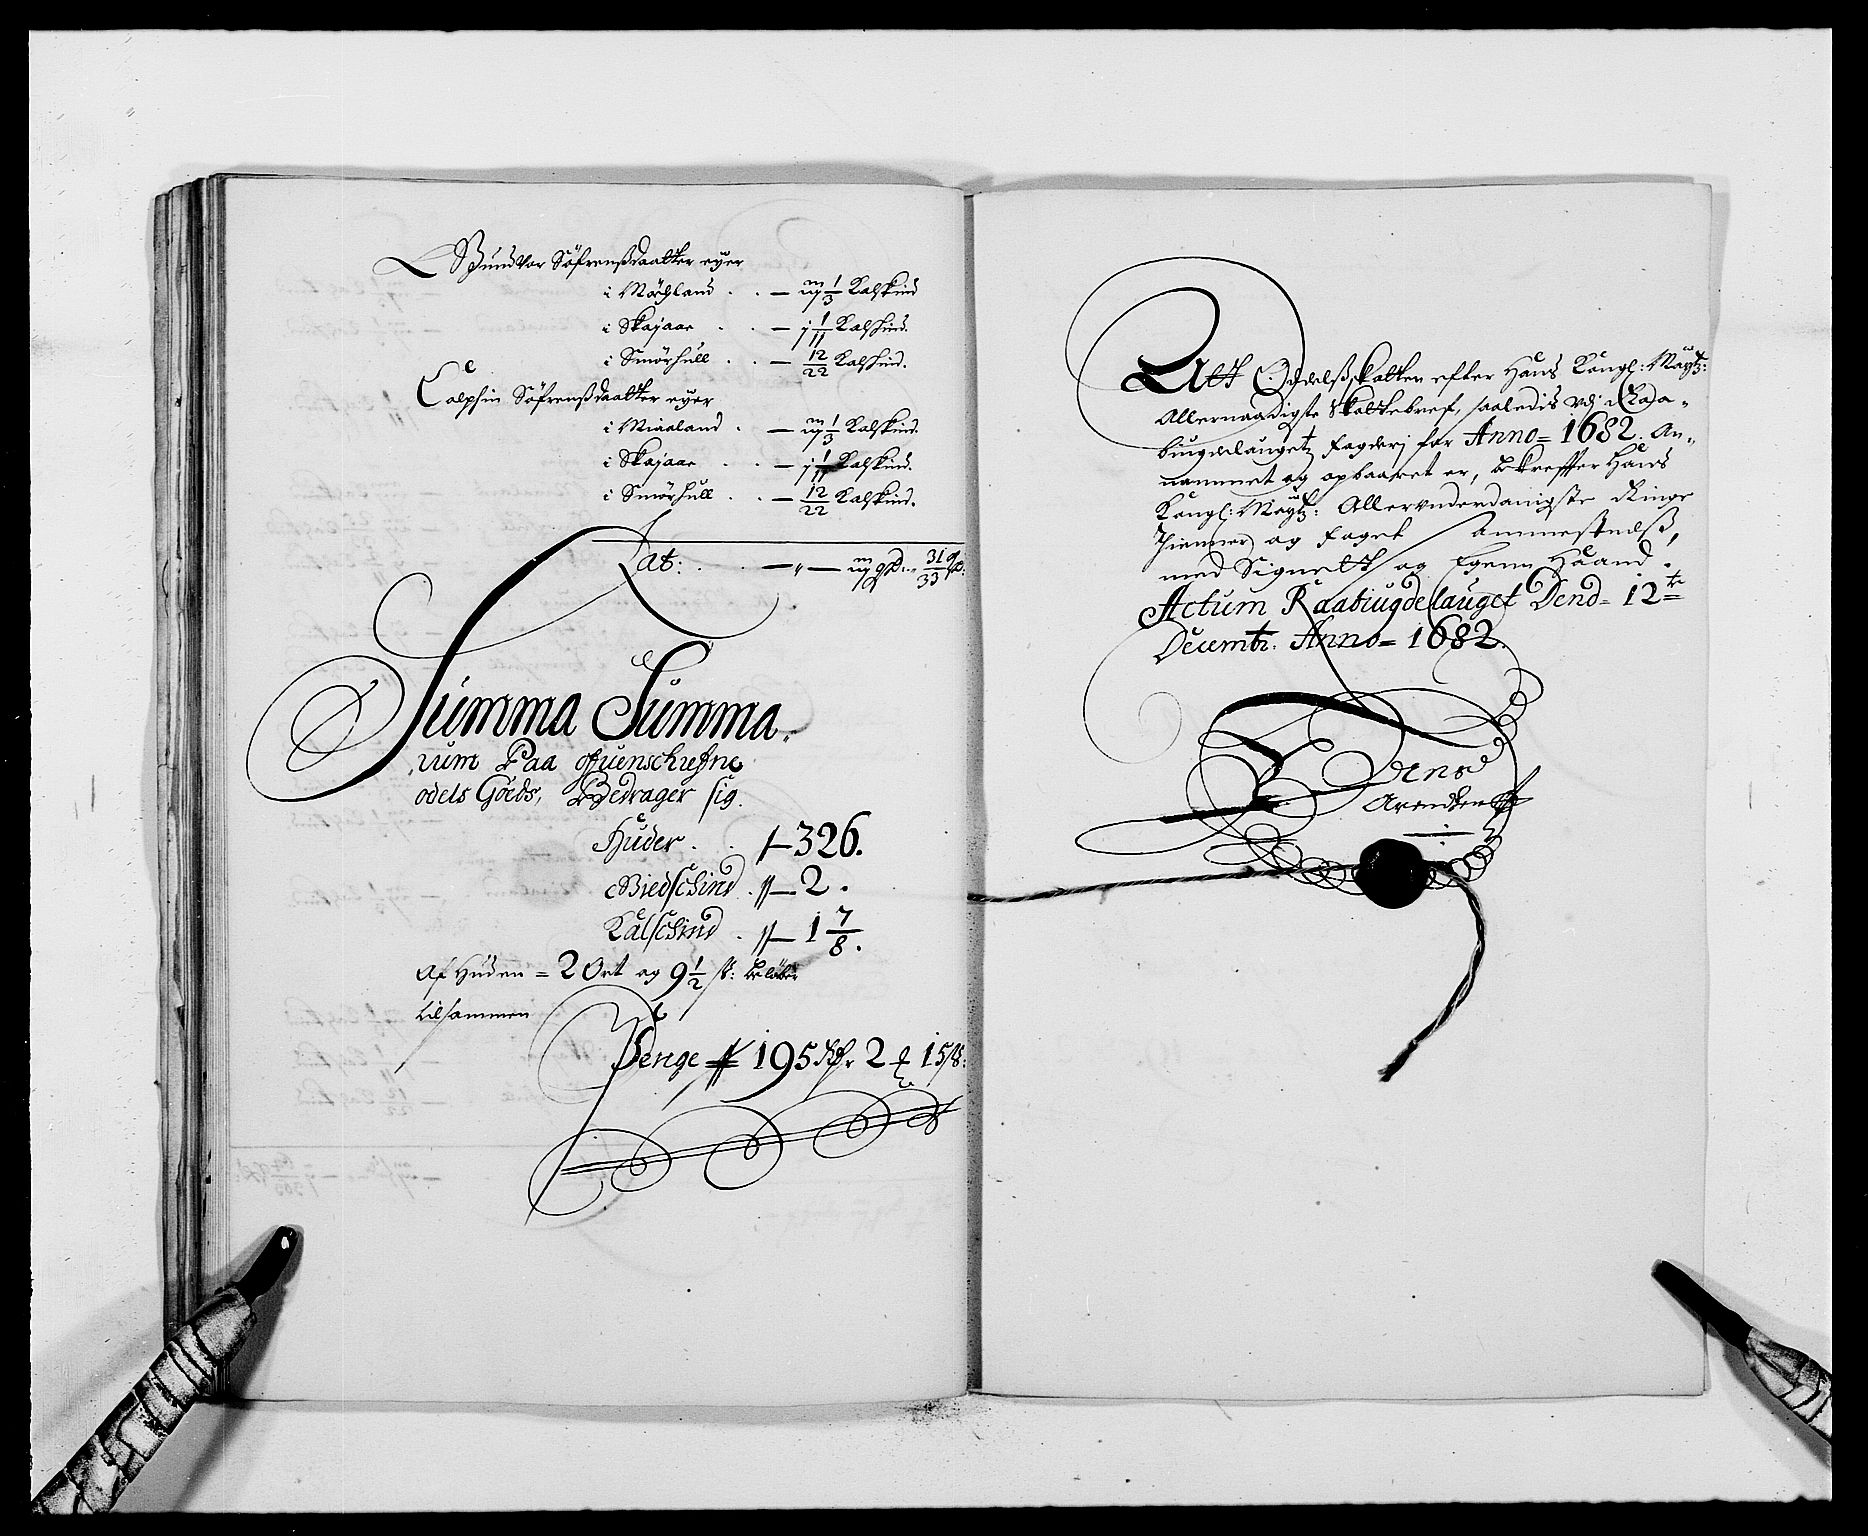 Gundvor Söfrensdaatter eyer
i Möchland . . — iij 1/3 Kalfskind
i Skajaae . . — j 1/11 Kalfskind.
i Smörhull . . — 12/22 Kalfskind.
Söfrensdaatter eyer
i Minaland . — iij 1/3 Kalfskind.
i Skajaae . . — j 1/11 Kalfskind.
i Smörhull . . — 12/22 Kalfskind.
Lat: . . — „ — iij 31/33
Summa Summa-
rum Paa offuenschrefne
odels Goeds, Bedrager sig.
Huder . . 326.
Giedschind . 2.
Kalfschind . 1 7/8.
Af Huden = 2 Ort og 9 1/2 sk: beløber
tilsammen
Penge 195 Rdr 2 15 sk:
Att Oddelsskatten efter Hans Kongl: Maytz:
Allernaadigste Skattebref, saaledis vdj Raa-
bugdelaugetz fogderj for Anno= 1682. An-
nammet og opbaaret er, bekreffter Hans
Kongl: Maytz: Allerunderdanigste Ringe
Thienner og foget
med Signett og Egenn Haand.
Actum Raabiugdelauget Dend= 12te
Decembr. Anno= 1682.
Jens
Arendsen